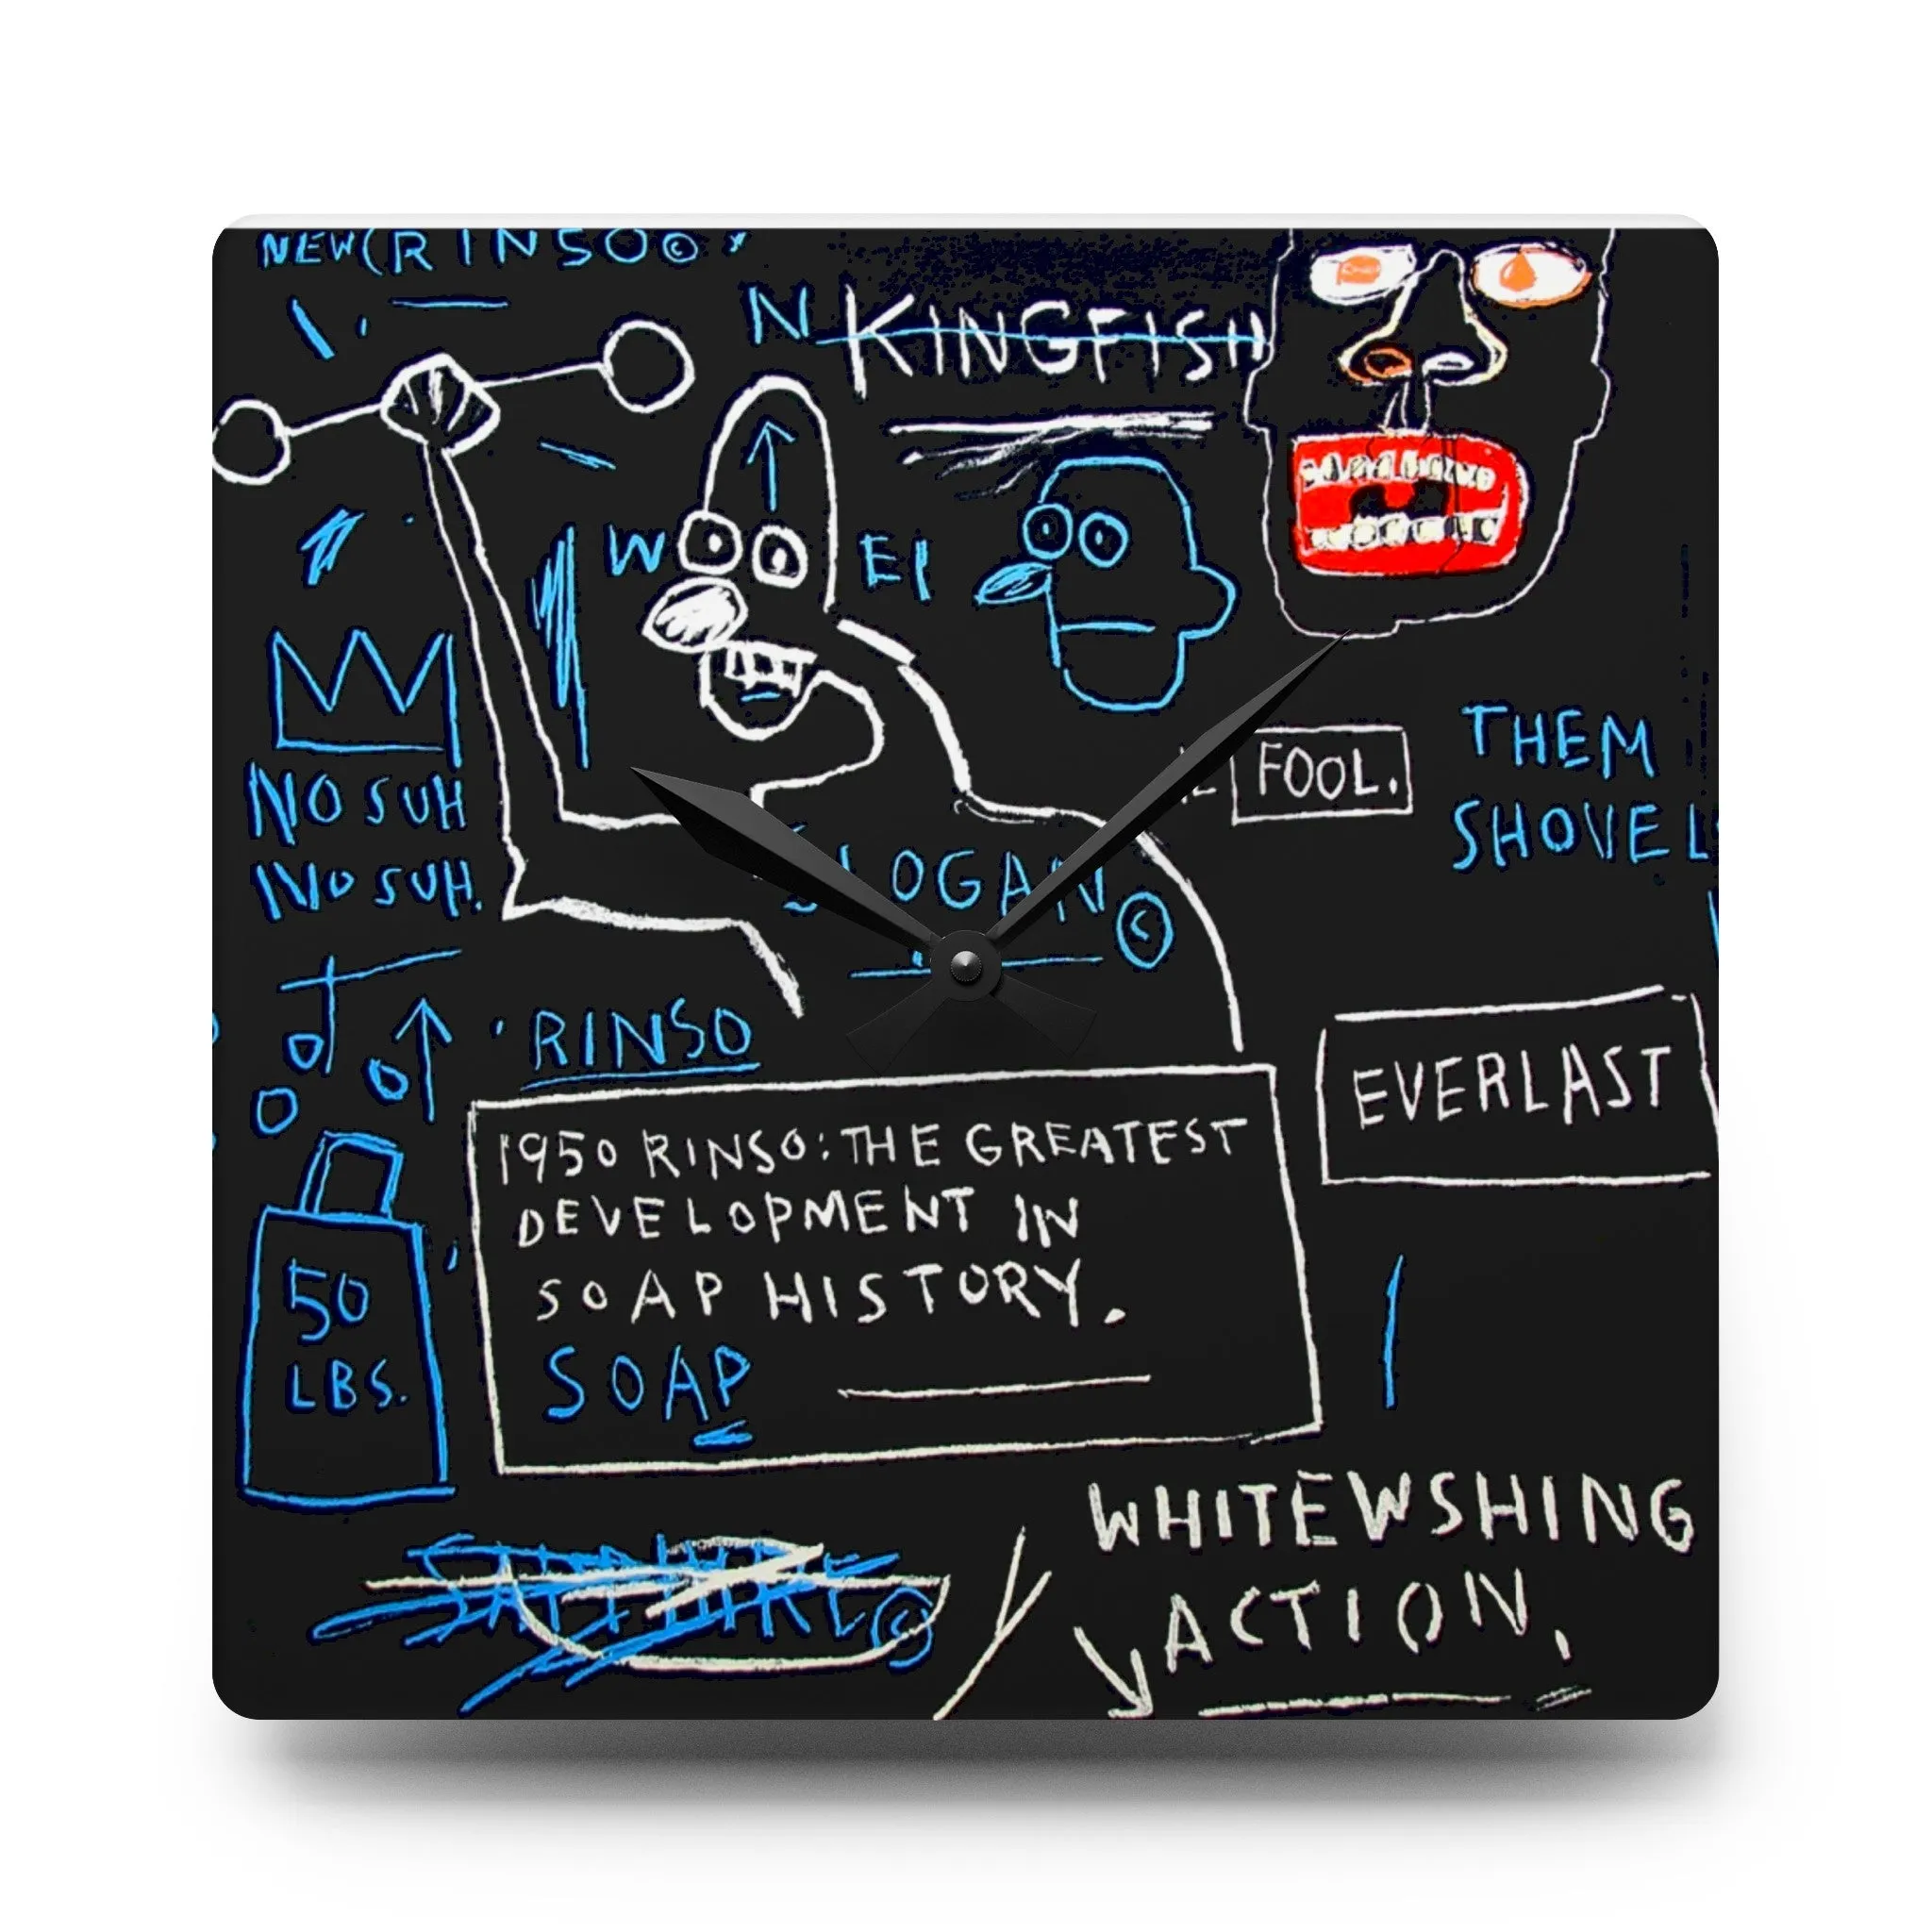 NEW(RINSO©
N KINGFISH
W
EI
FOOL.
THEM
SHOVEL
NO SUH
NO SUH.
SLOGAN©
RINSO
EVERLAST
1950 RINSO: THE GREATEST
DEVELOPMENT IN
SOAP HISTORY.
SOAP
50
LBS.
WHITEWSHING
ACTION.
SAPPHIRE©